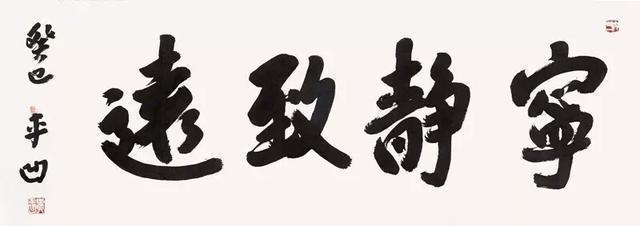 寧靜致遠
癸巳 平凹